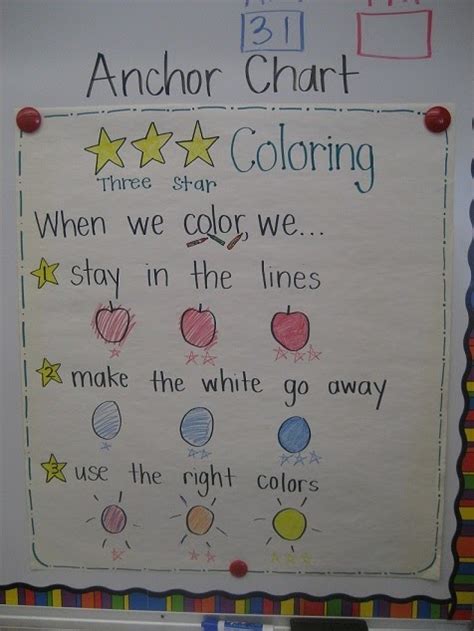 31
Anchor Chart
Coloring
Three Star
When we color, we...
1 stay in the lines
2 make the white go away
3 use the right colors